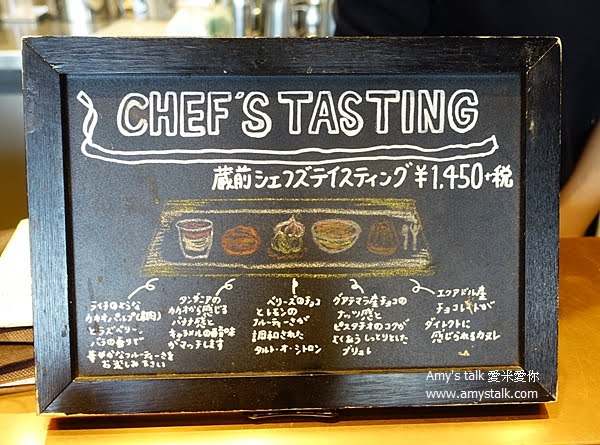 CHEF'S TASTING
蔵前シェフズテイスティング ¥1,450+税
ライチのような
カカオパルプ(果肉)
とラズベリー
バラの香りで
華やかなフルーティーさを
お楽しみ下さい
タンザニアの
カカオから感じる
バナナ感と
キャラメルの香ばし味
がマッチします
ベリーズのチョコ
とレモンの
フルーティーさが
調和された
タルト・オ・シトロン
グアテマラ産チョコの
ナッツ感と
ピスタチオのコクが
よくあう しっとりとした
ブリュレ
エクアドル産
チョコレートが
ダイレクトに
感じられるカヌレ
Amy's talk 愛米愛你
www.amystalk.com